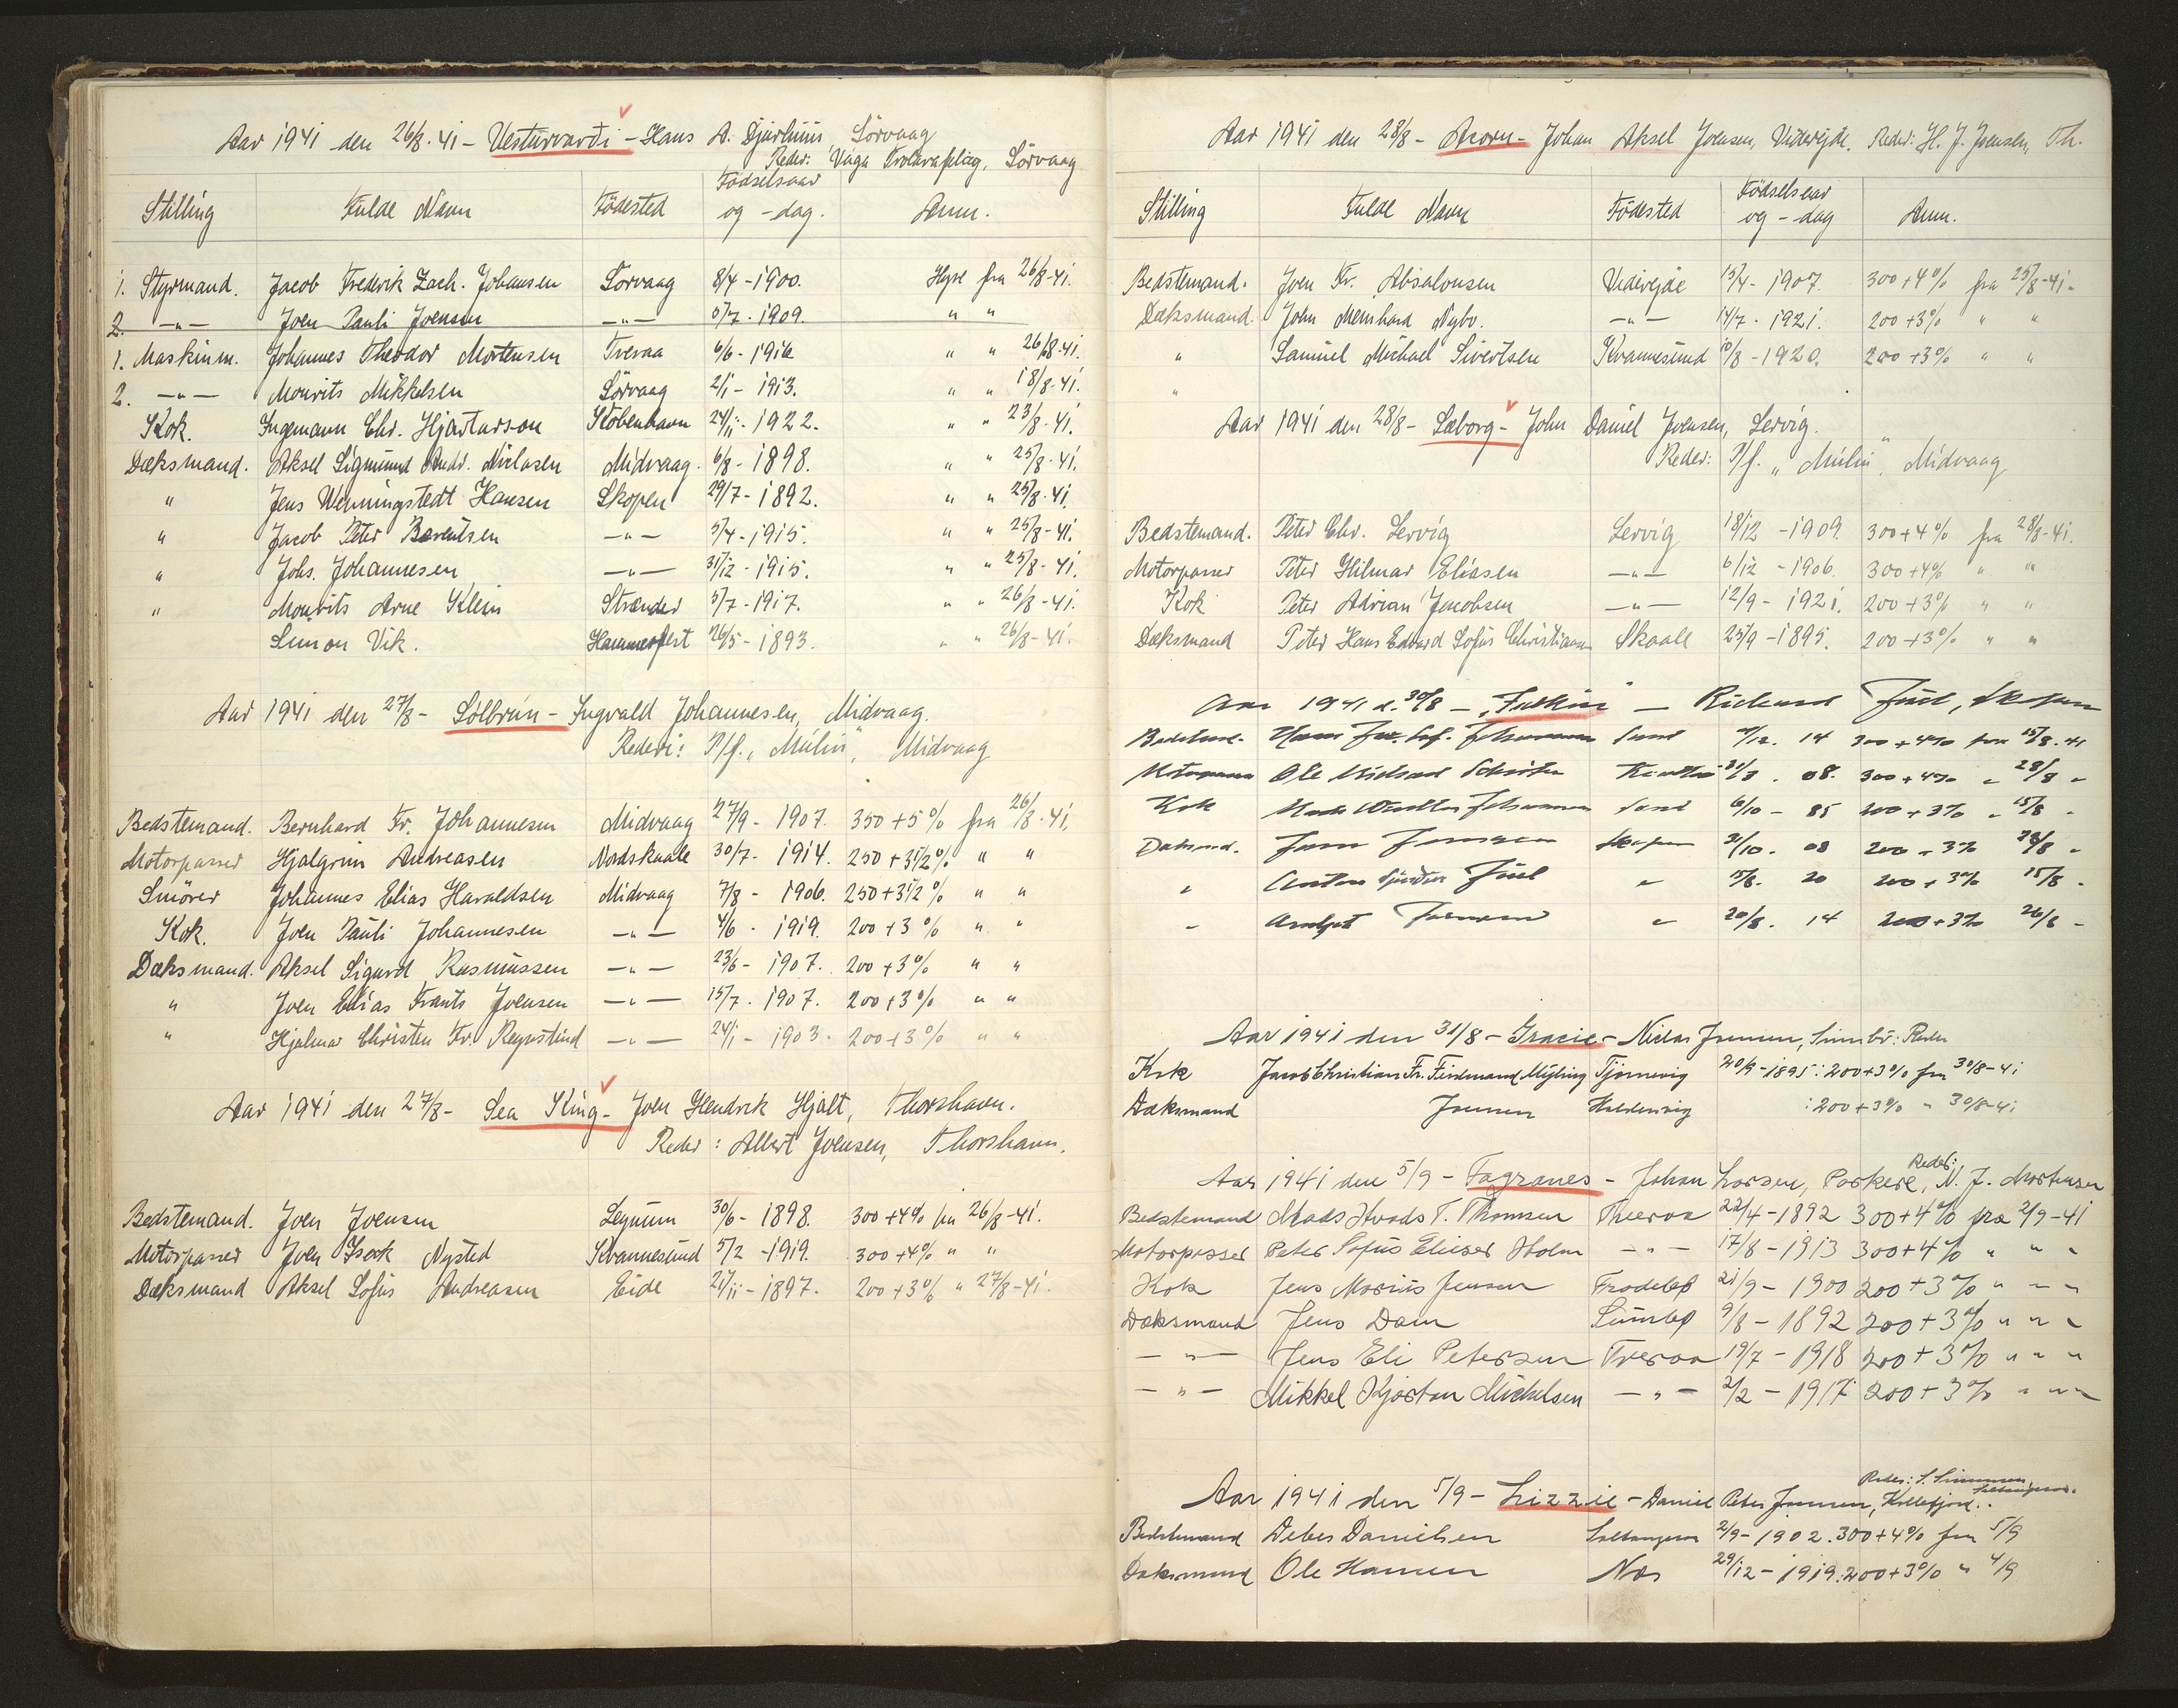 Aar 1941 den 26/8. 41 - Vesturvardi - Hans A. Djurhuus, Sörvaag
Reder: Vága Trolarafelag, Sörvaag
Stilling Fulde Navn Födested Födselsaar og - dag. Anm.
1. Styrmand. Jacob Frederik Zach. Johansen Sörvaag 8/4 - 1900. Hyre fra 26/8-41.
2. -"- Joen Pauli Joensen -"- 5/7 - 1909. " "
1. Maskinm. Johannes Theodor Mortensen Tveraa 6/6 - 1916 " " 26/8-41.
2. -"- Mourits Mikkelsen Sörvaag 2/1 - 1913. " " 18/8-41.
Kok. Ingemann Chr. Hjartarson Köbenhavn 24/11 - 1922. " " 23/8-41.
Dæksmand. Aksel Sigmund Andr. Niclasen Midvaag 6/8 - 1898. " " 25/8-41.
" Jens Wenningstedt Hansen Skopen 29/7 - 1892. " " 25/8-41.
" Jacob Peter Berentsen -"- 5/4 - 1915. " " 25/8-41.
" Johs. Johannesen -"- 31/12 - 1915. " " 25/8-41.
" Mourits Arne Klein Strænder 5/7 - 1917. " " 26/8-41.
Simon Vik. Hammerfest 26/5 - 1893. " " 26/8-41.
Aar 1941 den 27/8 - Sólbrún - Ingvald Johannesen, Midvaag.
Rederi: P/f. "Múlin", Midvaag
Bedstemand. Bernhard Fr. Johannesen Midvaag 27/9 - 1907. 350+5% fra 26/8-41.
Motorpasser Hjalgrim Andreasen Nordskaale 30/7 - 1914. 250+3 1/2% " "
Smörer Johannes Elias Haraldsen Midvaag 7/8 - 1906. 250+3 1/2% " "
Kok. Joen Pauli Johannesen -"- 4/6 - 1919. 200+3% " "
Dæksmand. Aksel Sigurd Rasmussen -"- 23/6 - 1907. 200+3% " "
" Joen Elias Frants Joensen -"- 15/7 - 1907. 200+3% " "
" Hjalmar Christen Fr. -"- 24/1 - 1903. 200+3% " "
Aar 1941 den 27/8 - Sea King - Joen Hendrik Hjalt, Thorshavn.
Reder: Albert Joensen, Thorshavn.
Bedstemand. Joen Joensen Leynum 30/6 - 1898. 300+4% fra 26/8-41.
Motorpasser Joen Isak Nysted Kvannesund 5/2 - 1919. 300+4% " "
Dæksmand Aksel Sofus Andreasen Eide 21/11 - 1897. 200+3% " 27/8-41.
Aar 1941 den 28/8 - Acorn - Johan Aksel Joensen, Videreide. Reder: H. J. Joensen, Th.
Stilling Fulde Navn Födested Födselsaar og - dag Anm.
Bedstemand. Joen Fr. Absalonsen Videreide 15/4 - 1907. 300+4% fra 25/8-41-
Dæksmand. John Meinhard Nybo. -"- 14/7 - 1921. 200+3% " "
" Samuel Michael Sivertsen Kvannesund 10/8 - 1920. 200+3% " "
"
Aar 1941 den 28/8 - Sæborg - John Daniel Joensen, Lervig.
Reder: P/f. "Múlin", Midvaag
Bedstemand. Peter Chr. Lervig Lervig 18/12 - 1909. 300+4% fra 28/8-41.
Motorpasser Peter Hilmar Eliasen -"- 6/12 - 1906. 300+4% " "
Kok Peter Adrian Jacobsen -"- 12/9 - 1921. 200+3% " "
Dæksmand Peter Hans Edvard Sofus Christiansen Skaale 25/9 - 1895. 200+3% " "
Aar 1941 d. 30/8 - - Richard Juul, Skopen
Bedstemd. Hans Johannesen Sand 14 300+4% fra 15/8-41
Motorpasser Ole 31/3 . 08. 300+4% " 28/8 "
Kok Johannesen Sand 6/10 - 85 200+3% " 15/8 "
Dæksmd. Joensen Skopen 31/10. 08 200+3% 28/8 "
" Anton Juul " 20 200+3% 15/8 "
" " 20/8. 14 200+3% 26/8 "
Aar 1941 den 31/8 - Gracie - Niclas Joensen, Sumbö: Reder
Kok Jacob Christian Fr. Ferdinand Mýling Tjörnevig 20/9-1895: 200+3% fra 30/8-41
Dæksmand Joensen Haldersvig : 200+3% " 30/8-41
Aar 1941 den 5/9 - Fagranes - Johan Larsen, Porkere, Reder: N. J. Mortensen
Bedstemand Mads Hvads T. Thomsen Tveeraa 22/4-1892 300+4% fra 2/9-41
Motorpasser Peter Sofus Elieser Holm -"- 17/8-1913 300+4% " " "
Kok Jens Marius Jensen Frodebø 21/9 - 1900 200+3% " " "
Dæksmand Jens Dam Sumbø 9/8 - 1892 200+3% " " "
-"- Jens Eli Petersen Tveraa 19/7 - 1918 200+3% " " "
-"- Mikkel Kjartan Mickelsen -"- 2/2 - 1917 200+3% " " "
Aar 1941 den 5/9 - Lizzie - Daniel Peter Joensen, Kollefjord. Reder: S. Simonsen
Bedstemand Debes Danielsen Saltangeraa 2/9-1902. 300+4% fra 5/9
Dæksmand Ole Hansen Næs 29/12-1919. 200+3% " 4/9